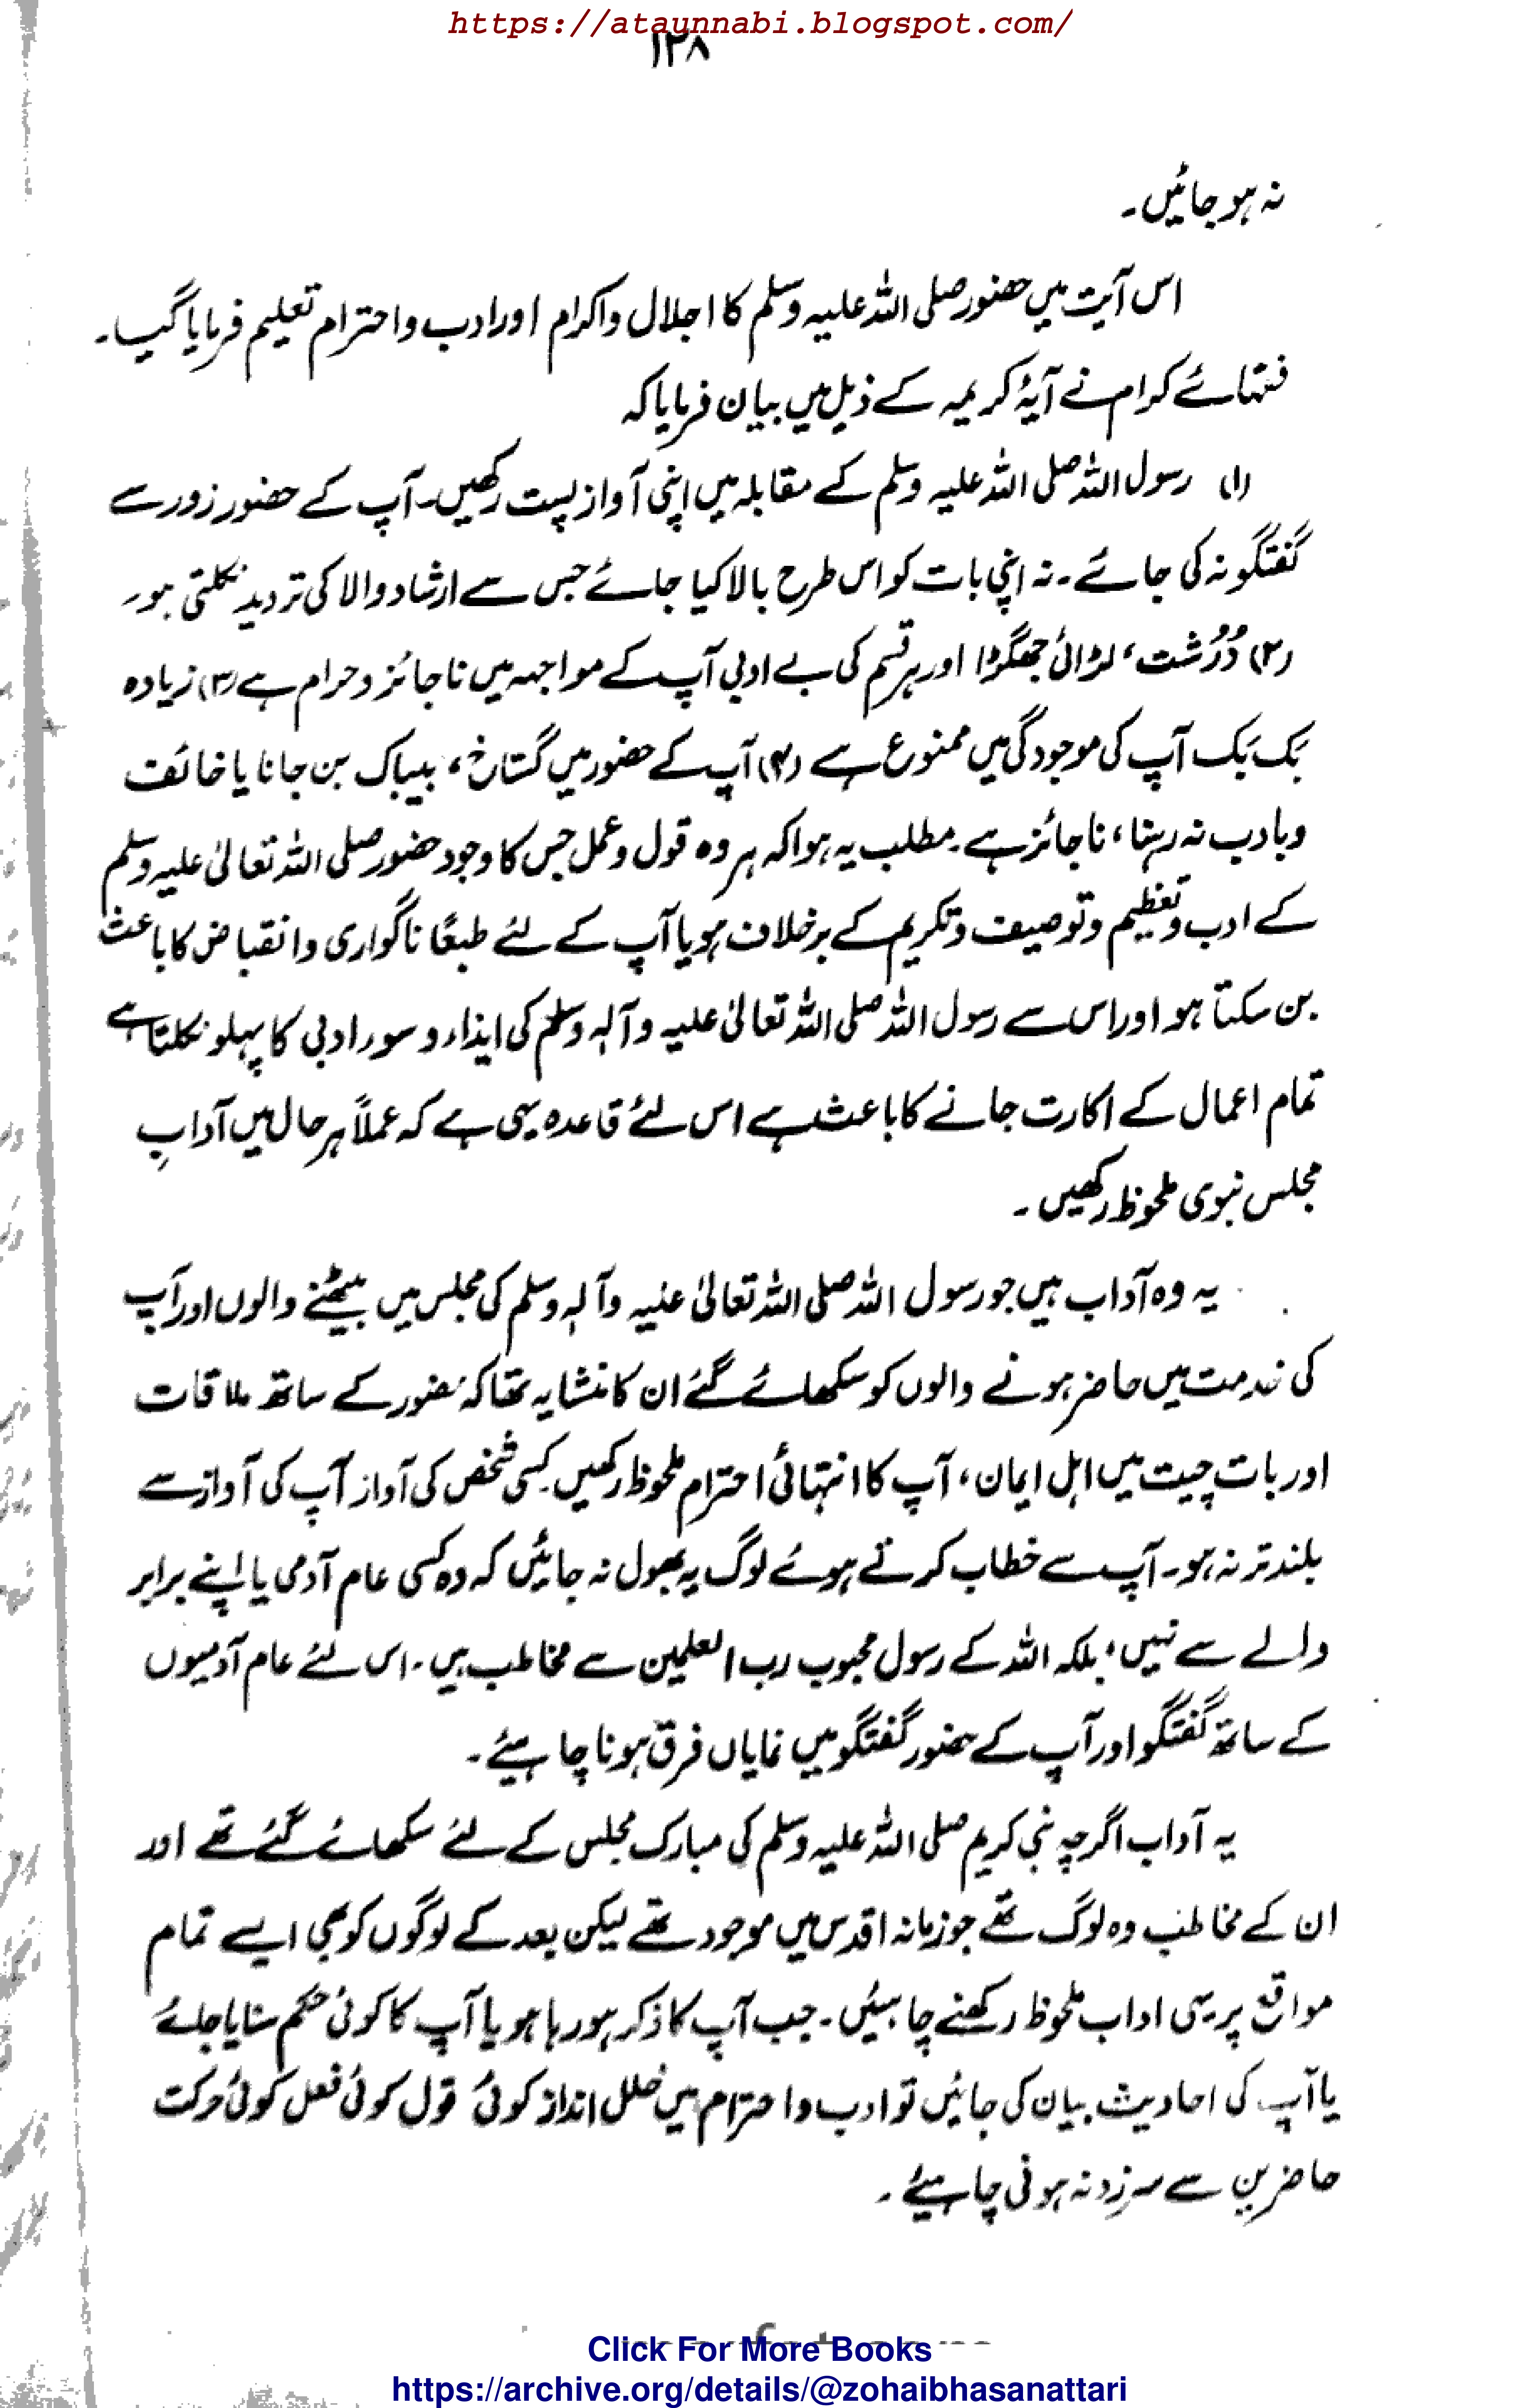 https://ataunnabi.blogspot.com/
۱۲۸
نہ ہو جائیں۔
اس آیت میں حضور صلی اللہ علیہ وسلم کا اجلال و اکرام اور ادب و احترام تعلیم فرمایا گیا۔
فقہائے کرام نے آیۂ کریمہ کے ذیل میں بیان فرمایا کہ
(۱) رسول اللہ صلی اللہ علیہ وسلم کے مقابلہ میں اپنی آواز پست رکھیں۔ آپ کے حضور زور سے
گفتگو نہ کی جائے۔ نہ اپنی بات کو اس طرح بالا کیا جائے جس سے ارشاد والا کی تردید نکلتی ہو۔
(۲) دُرُشت، لڑائی جھگڑا اور ہر قسم کی بے ادبی آپ کے مواجہہ میں ناجائز و حرام ہے (۳) زیادہ
بک بک آپ کی موجودگی میں ممنوع ہے (۴) آپ کے حضور میں گستاخ، بیباک بن جانا یا خائف
و باادب نہ رہنا، ناجائز ہے۔ مطلب یہ ہوا کہ ہر وہ قول و عمل جس کا وجود حضور صلی اللہ تعالیٰ علیہ وسلم
کے ادب و تعظیم و توصیف و تکریم کے برخلاف ہو یا آپ کے لئے طبعًا ناگواری و انقباض کا باعث
بن سکتا ہو اور اس سے رسول اللہ صلی اللہ تعالیٰ علیہ وآلہ وسلم کی ایذاء و سوء ادبی کا پہلو نکلتا ہے
تمام اعمال کے اکارت جانے کا باعث ہے اس لئے قاعدہ یہی ہے کہ عملاً ہر حال میں آدابِ
مجلس نبوی ملحوظ رکھیں۔
یہ وہ آداب ہیں جو رسول اللہ صلی اللہ تعالیٰ علیہ وآلہ وسلم کی مجلس میں بیٹھنے والوں اور آپ
کی خدمت میں حاضر ہونے والوں کو سکھائے گئے ان کا منشا یہ تھا کہ حضور کے ساتھ ملاقات
اور بات چیت میں اہل ایمان، آپ کا انتہائی احترام ملحوظ رکھیں۔ کسی شخص کی آواز آپ کی آواز سے
بلند تر نہ ہو۔ آپ سے خطاب کرتے ہوئے لوگ یہ بھول نہ جائیں کہ وہ کسی عام آدمی یا اپنے برابر
والے سے نہیں، بلکہ اللہ کے رسول محبوب رب العلمین سے مخاطب ہیں۔ اس لئے عام آدمیوں
کے ساتھ گفتگو اور آپ کے حضور گفتگو میں نمایاں فرق ہونا چاہیئے۔
یہ آداب اگرچہ نبی کریم صلی اللہ علیہ وسلم کی مبارک مجلس کے لئے سکھائے گئے تھے اور
ان کے مخاطب وہ لوگ تھے جو زمانہ اقدس میں موجود تھے لیکن بعد کے لوگوں کو بھی ایسے تمام
مواقع پر یہی اداب ملحوظ رکھنے چاہئیں۔ جب آپ کا ذکر ہو رہا ہو یا آپ کا کوئی حکم سنایا جائے
یا آپ کی احادیث بیان کی جائیں تو ادب و احترام میں خلل انداز کوئی قول کوئی فعل کوئی حرکت
حاضرین سے سرزد نہ ہونی چاہیئے۔
Click For More Books
https://archive.org/details/@zohaibhasanattari